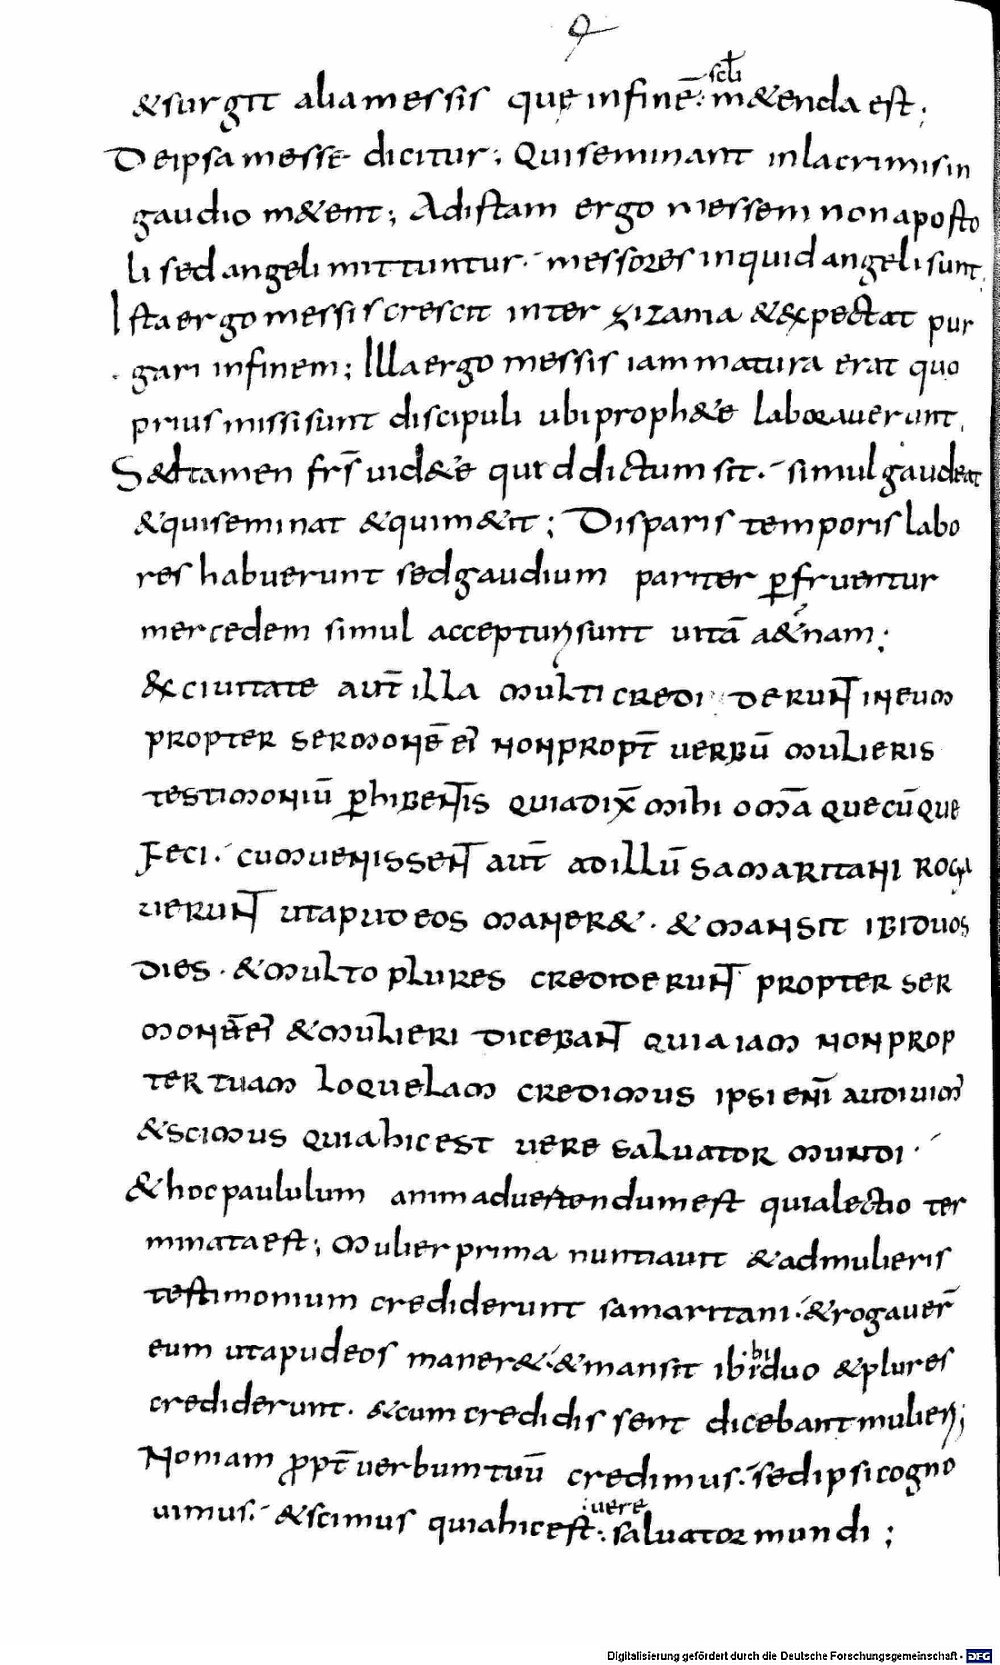 &surgit alia messis quę in finē scłi m&enda est;
De ipsa messe dicitur; Qui seminant in lacrimis in
gaudio m&ent; Ad istam ergo messem non aposto
li sed angeli mittuntur. messores inquid angeli sunt;
Ista ergo messis crescit inter zizania &expectat pur
gari in finem; Illa ergo messis iam matura erat quo
prius missi sunt discipuli ubi proph&ę laborauerunt.
S&tamen frs̄ uid&ę quid dictum sit. simul gaudeat
&qui seminat &qui m&it; Disparis temporis labo
res habuerunt sed gaudium pariter ꝑfruentur
mercedem simul accepturi sunt uitā a&nam;
&x ciuitate aut̄ illa multi credi derunt in eum
propter sermonē ei' non propt̄ uerbū mulieris
testimoniū ꝑhibentis quia dix̄ mihi omā quecūque
feci. cum uenissent aut̄ ad illū samaritani roga
uerunt ut apud eos maner&. &mansit ibi duos
dies. &multo plures crediderunt propter ser
monē ei' &mulieri dicebant quia iam non prop
ter tuam loquelam credimus ipsi eni̅ audiuim'
&scimus quia hic est uere saluator mundi.
&hoc paululum animaduertendum est quia lectio ter
minata est; mulier prima nuntiauit &ad mulieris
testimonium crediderunt samaritani. &rogauer̄
eum ut apud eos maner&. &mansit ibi biduo &plures
crediderunt. &cum credidissent dicebant mulieri;
Non iam ꝓpt̄ uerbum tuū credimus. sed ipsi cogno
uimus. &scimus quia hic est uere saluator mundi;
Digitalisierung gefördert durch die Deutsche Forschungsgemeinschaft - DFG